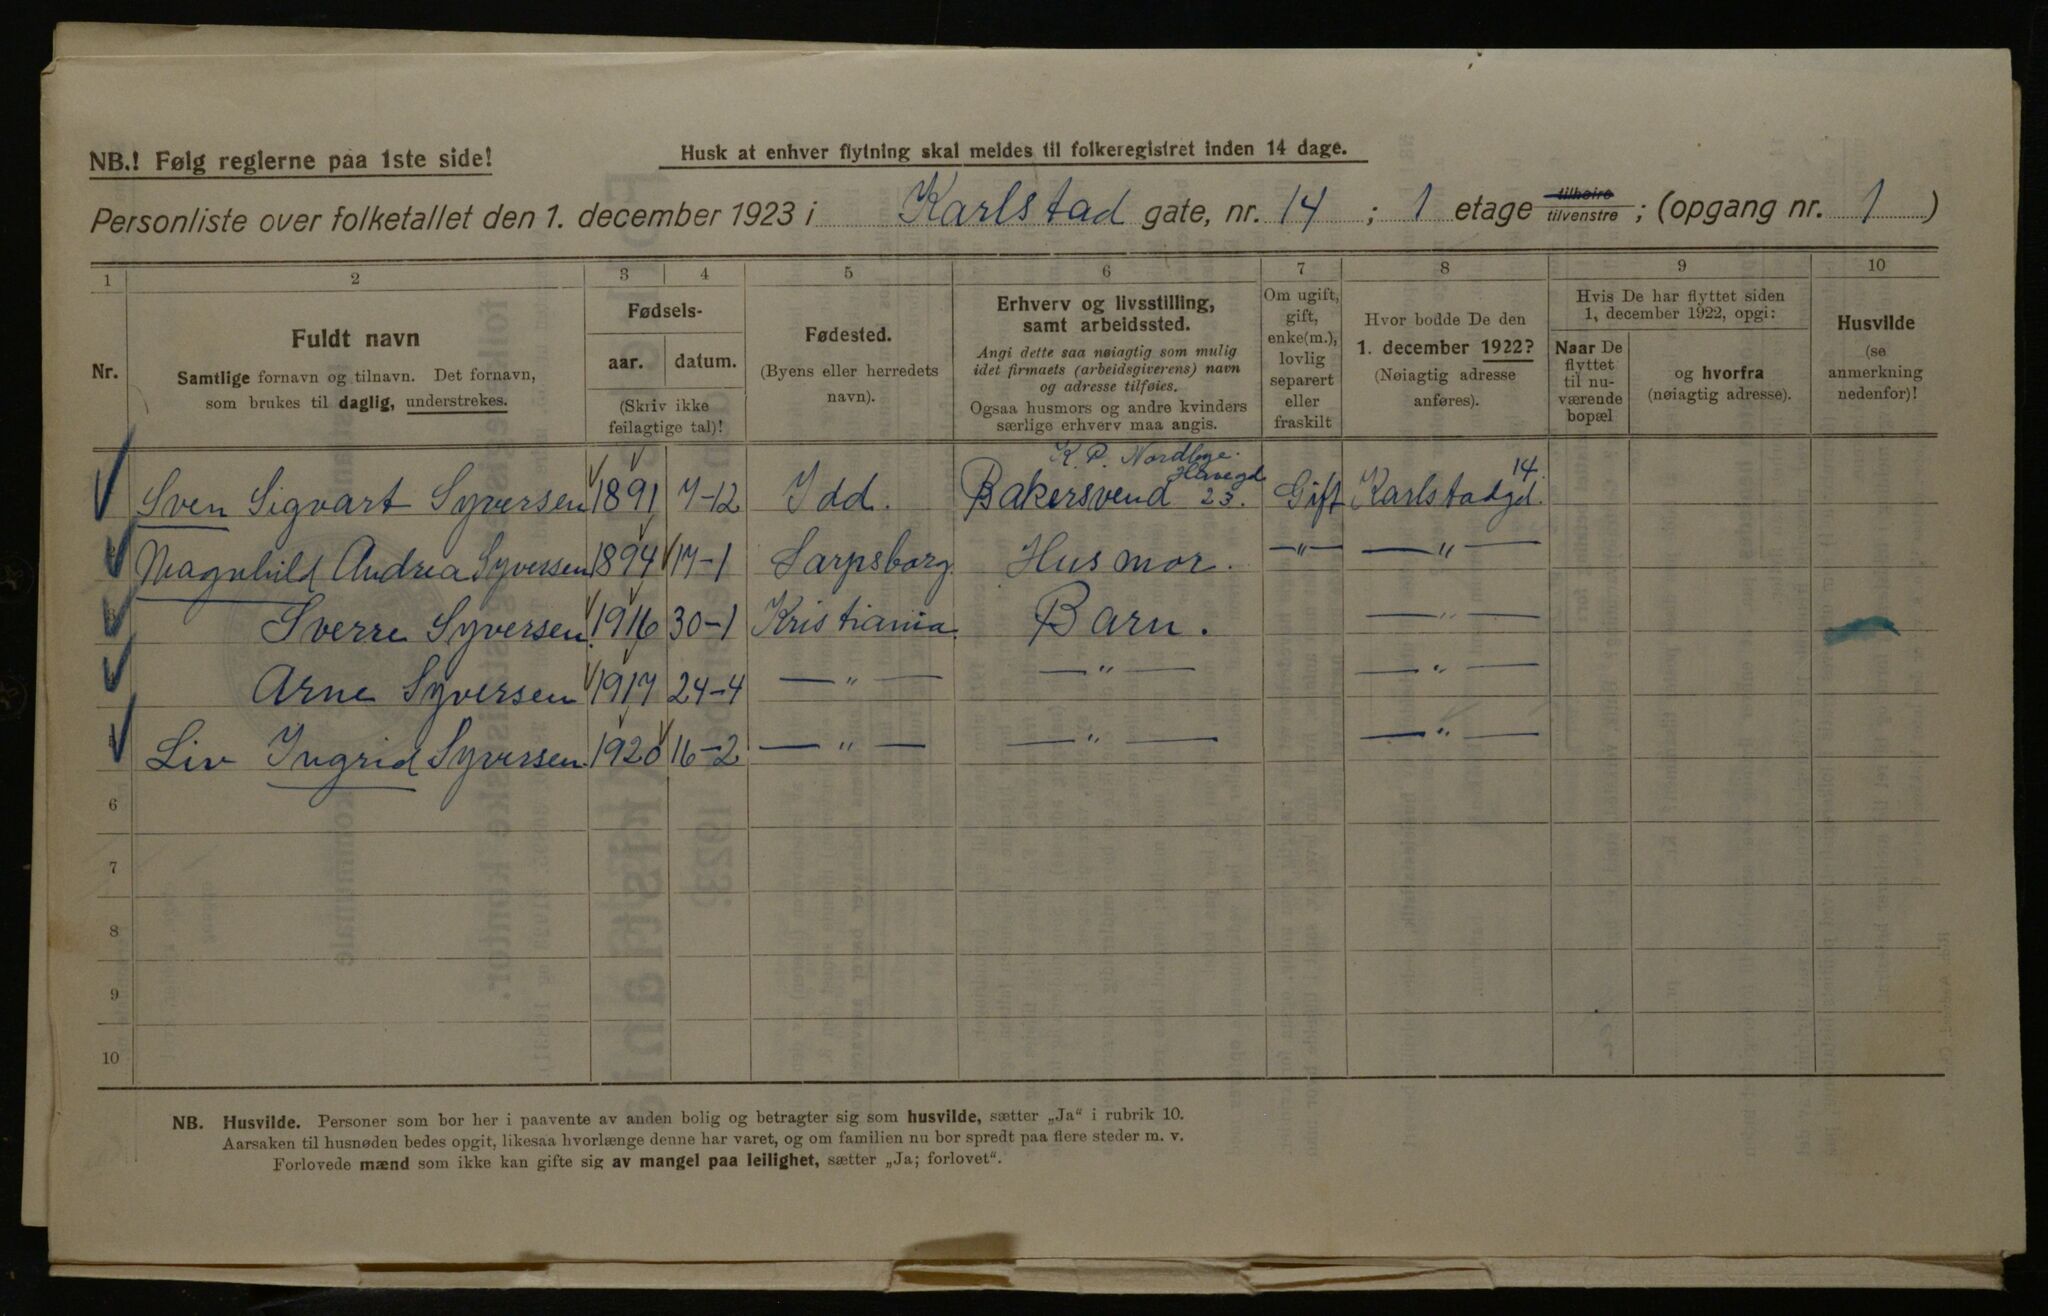 NB.! Følg reglerne paa 1ste side!
Husk at enhver flytning skal meldes til folkeregistret inden 14 dage.
Personliste over folketallet den 1. december 1923 i Karlstad gate, nr. 14 ; 1 etage tilhøire tilvenstre ; (opgang nr. 1 )
1 2 3 4 5 6 7 8 9 10
Nr.
Fuldt navn
Samtlige fornavn og tilnavn. Det fornavn,
som brukes til daglig, understrekes.
Fødsels-
aar. datum.
(Skriv ikke
feilagtige tal)!
Fødested.
(Byens eller herredets
navn).
Erhverv og livsstilling,
samt arbeidssted.
Angi dette saa nøiagtig som mulig
idet firmaets (arbeidsgiverens) navn
og adresse tilføies.
Ogsaa husmors og andre kvinders
særlige erhverv maa angis.
Om ugift,
gift,
enke(m.),
lovlig
separert
eller
fraskilt
Hvor bodde De den
1. december 1922?
(Nøiagtig adresse
anføres).
Hvis De har flyttet siden
1, december 1922, opgi:
Naar De
flyttet
til nu-
værende
bopæl
og hvorfra
(nøiagtig adresse).
Husvilde
(se
anmerkning
nedenfor)!
K. P. Nordbye.
Sven Sigvart Syversen 1891 7-12 Idd. Bakersvend 23. Gift Karlstadgd. 14.
Magnhild Andrea Syversen 1894 17-1 Sarpsborg. Husmor. —"— —"—
Sverre Syversen 1916 30-1 Kristiania. Barn. —"—
Arne Syversen 1917 24-4 —"— —"— —"—
Liv Ingrid Syversen 1920 16-2 —"— —"— —"—
6
7
8
9
10
NB. Husvilde. Personer som bor her i paavente av anden bolig og betragter sig som husvilde, sætter „Ja“ i rubrik 10.
Aarsaken til husnøden bedes opgit, likesaa hvorlænge denne har varet, og om familien nu bor spredt paa flere steder m. v.
Forlovede mænd som ikke kan gifte sig av mangel paa leilighet, sætter „Ja; forlovet“.